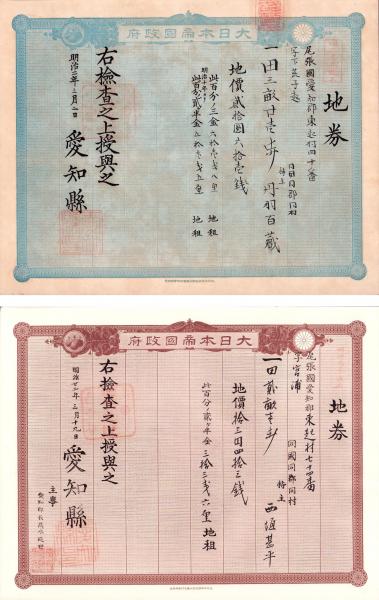 大日本帝國政府
地券
尾張國愛知郡東起村四十番
同國同郡同村
持主 丹羽百蔵
一田三畝廿壱歩
地價貳拾圓六拾壱銭
此百分ノ三金六拾壱銭八厘 地租
明治十年ヨリ
此百分ノ貳ケ半金五拾壱銭五厘 地租
右檢査之上授與之
愛知縣
大日本帝國政府
地券
尾張國愛知郡東起村七十四番
字宮浦
同國同郡同村
持主 甚平
一田貳畝壱歩
地價拾三圓四拾三銭
此百分ノ貳ケ半金三拾三銭六厘 地租
右檢査之上授與之
明治廿一年三月十九日
愛知縣
主事